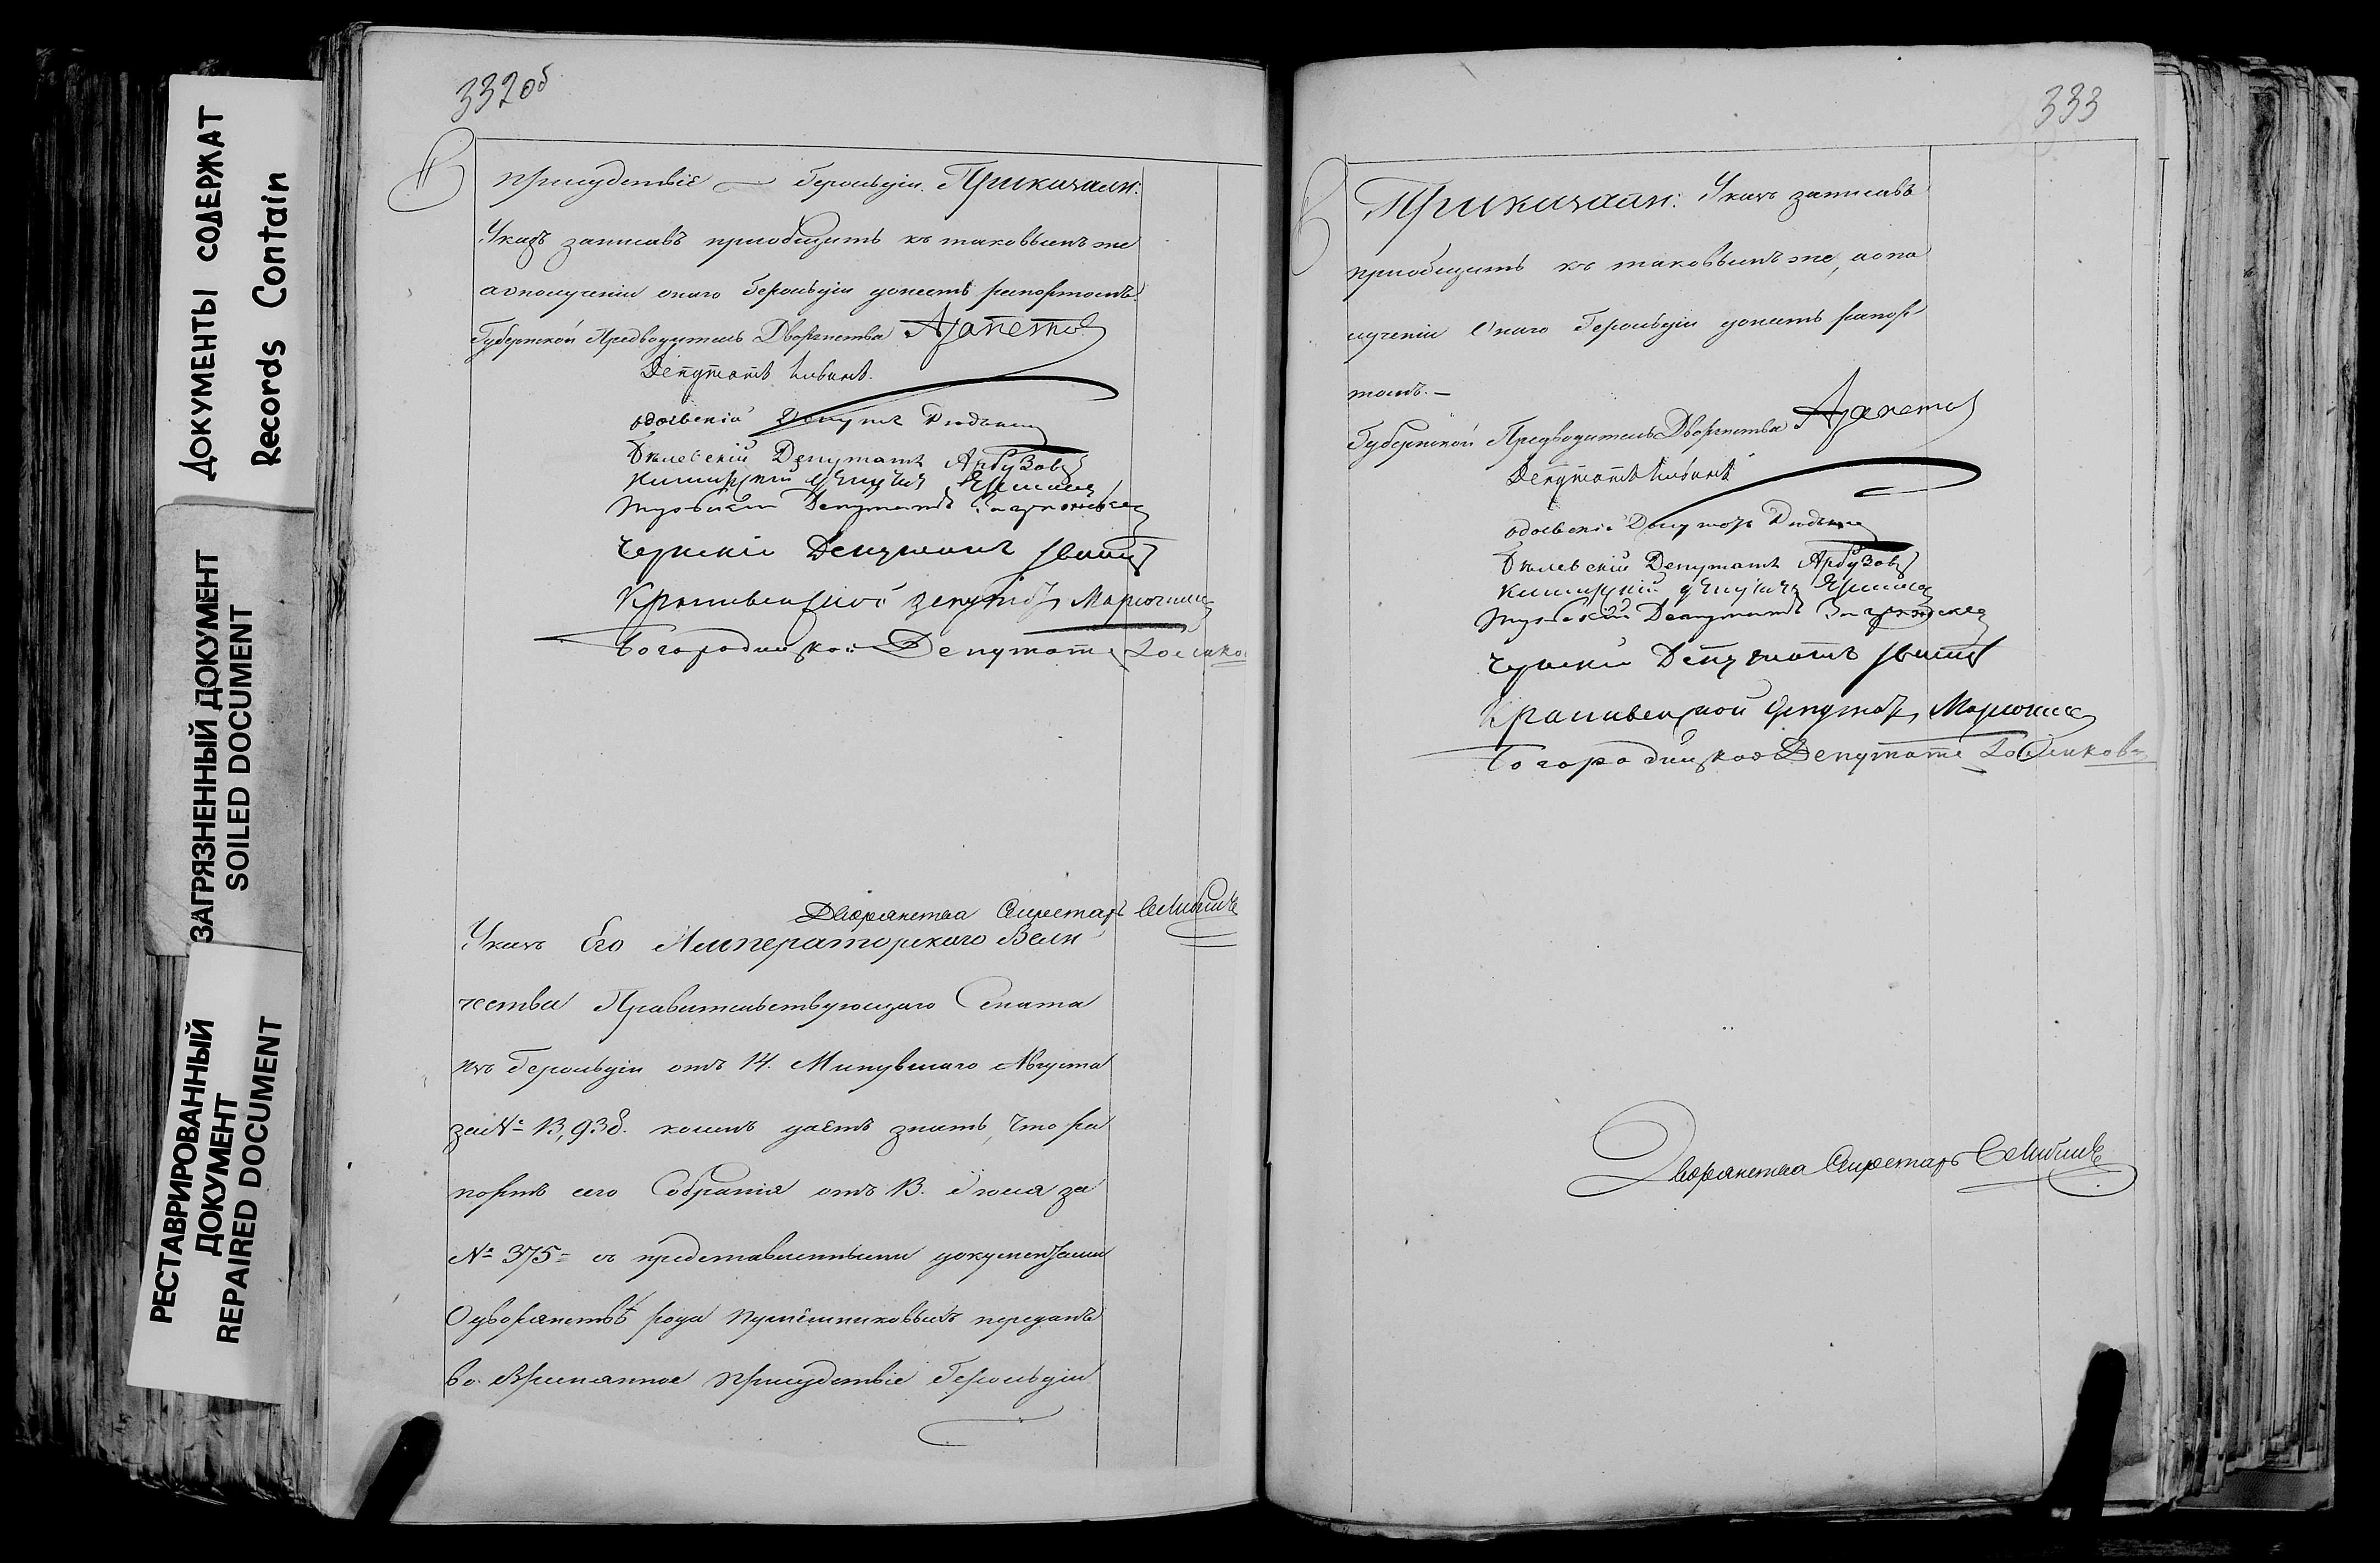 ДОКУМЕНТЫ СОДЕРЖАТ
Records Contain
ЗАГРЯЗНЕННЫЙ ДОКУМЕНТ
SOILED DOCUMENT
РЕСТАВРИРОВАННЫЙ
ДОКУМЕНТ
REPAIRED DOCUMENT
332об
присудствіе Герольдіи. Приказали:
Указъ записавъ приобщить къ таковымъ же
а о полученіи онаго Герольдіи донесть рапортомъ
Губернской Предводитель Дворянства Арапетов
Депутатъ
одоевскій Депутатъ
Бѣлевскій Депутатъ Арбузовъ
Каширскій Депутатъ
Тульскій Депутатъ
Чернскій Депутатъ
Крапивенской депутатъ
Богородицкой Депутатъ
Дворянства Секретарь
Указъ Его Императорскаго Вели
чества Правительствующаго Сената
изъ Герольдіи отъ 14. Минувшаго Августа
за № 13,938. коимъ даетъ знать, что ра
портъ сего Собранія отъ 13. Іюля за
№ 375 съ представленными документами
О дворянствѣ рода переданъ
во Временное присудствіе Герольдіи
333
Приказали: Указъ записавъ
приобщить къ таковымъ же, а о по
лученіи Онаго Герольдіи донесть рапор
томъ. —
Губернской Предводитель Дворянства Арапетов
Депутатъ
одоевскій Депутатъ
Бѣлевскій Депутатъ Арбузовъ
Каширскій Депутатъ
Тульскій Депутатъ
Чернскій Депутатъ
Крапивенской Депутатъ
Богородицкой Депутатъ
Дворянства Секретарь